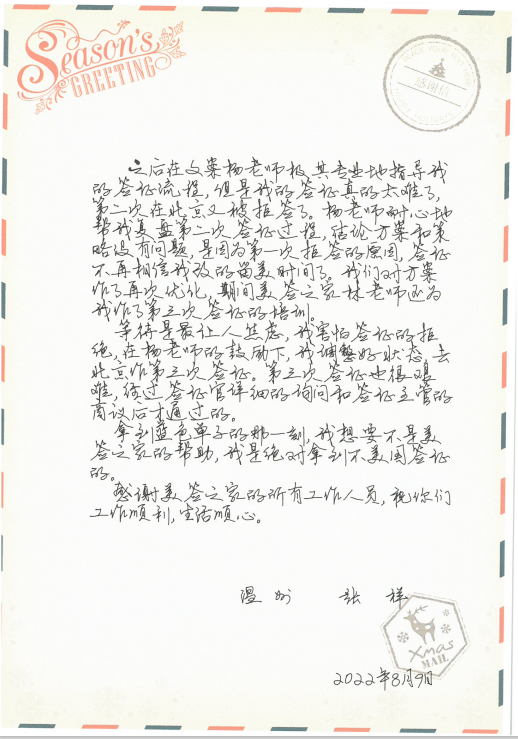 SEASON'S
GREETING
感谢信
之后在文案杨老师极其专业地指导我
的签证流程,但是我的签证真的太难了,
第二次在北京又被拒签了。杨老师耐心地
帮我复盘第二次签证过程,结论方案和策
略没有问题,是因为第一次拒签的原因,签证
不再相信我放的留美时间了。我们对方案
作了再次优化,期间美签之家林老师还为
我作了第三次签证的培训。
等待是最让人焦虑,我害怕签证的拒
绝,在杨老师的鼓励下,我调整好状态,去
北京作第三次签证。第三次签证也很艰
难,经过签证官详细的询问和签证主管的
商议后才通过的。
拿到蓝色单子的那一刻,我想要不是美
签之家的帮助,我是绝对拿到不美国签证
的。
感谢美签之家的所有工作人员,祝你们
工作顺利,生活顺心。
温州 张祥
Xmas
MAIL
2022年8月9日